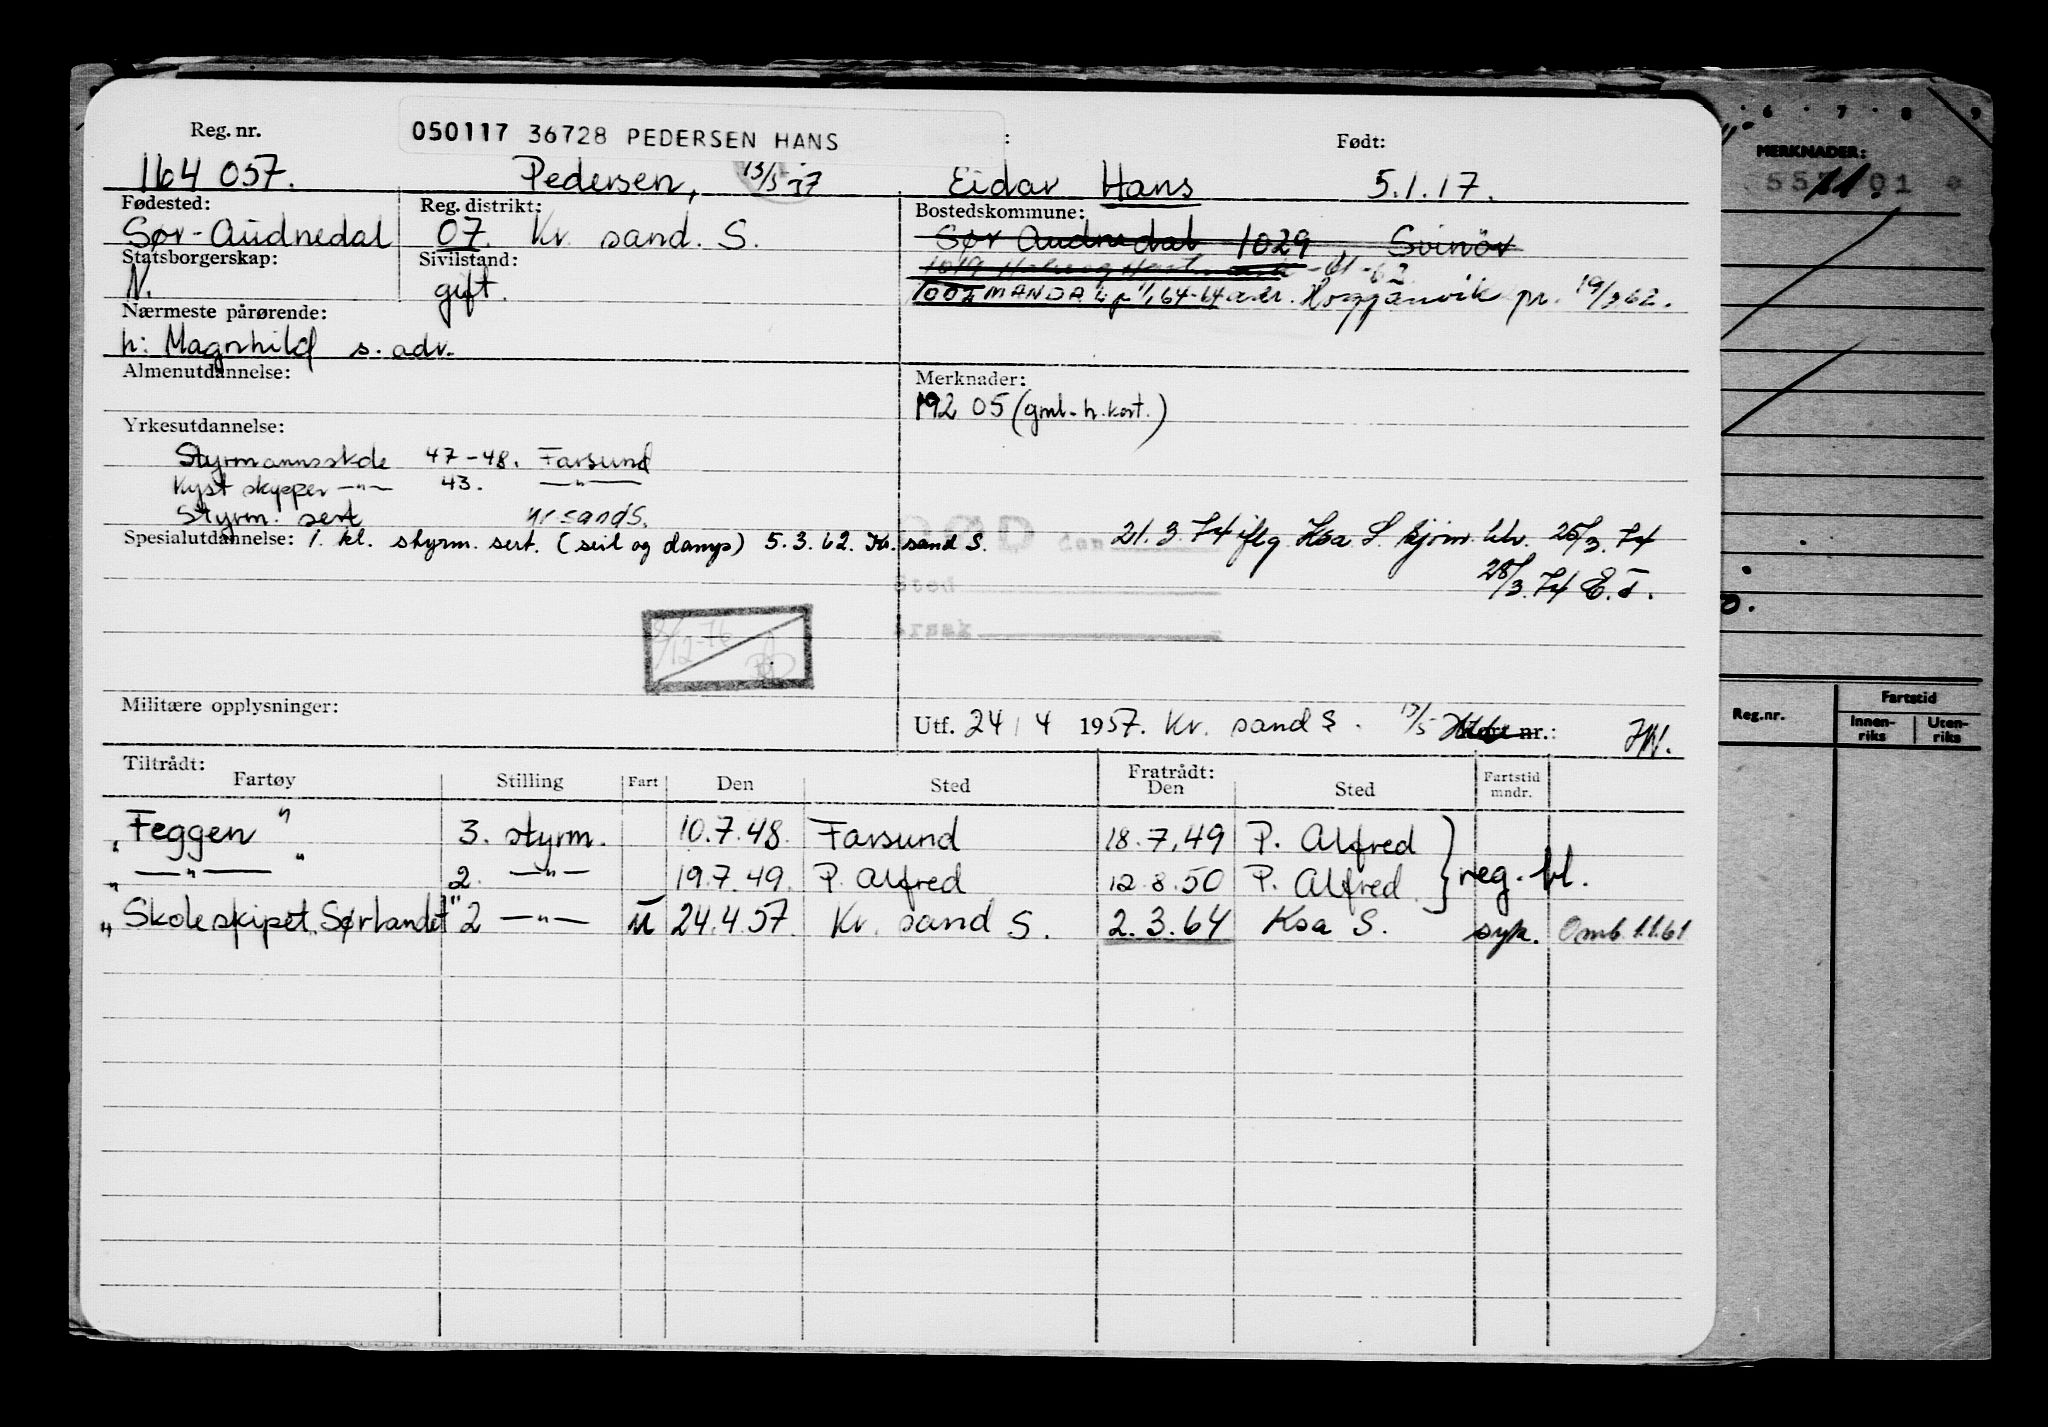 Reg. nr.
050117 36728 PEDERSEN HANS
:
Født:
164 057.
Pedersen,
Eidar Hans
5.1.17.
Fødested:
Reg. distrikt:
Bostedskommune:
Sør-Audnedal
07. Kr. sand. S.
Sør Audnedal 1029, Svinör
Statsborgerskap:
Sivilstand:
N.
gift.
1002 MANDAL pr. 19/3 62.
Nærmeste pårørende:
h: Magnhild s. adr.
Almenutdannelse:
Merknader:
192 05 (gml. h.kort.)
Yrkesutdannelse:
Styrmannsskole 47-48. Farsund
Kyst skipper —"— 43. —"—
Styrm. sert Kr sand S.
Spesialutdannelse: 1. kl. styrm. sert. (seil og damp) 5.3.62. Kr. sand S.
21.3.74 iflg. Ksa S. 26/3.74
28/3.74 E.T.
Militære opplysninger:
Utf. 24 / 4 1957. Kr. sand S. 13/5 nr.:
Tiltrådt:
Fartøy
Stilling
Fart
Den
Sted
Fratrådt:
Den
Sted
Fartstid
mndr.
"Feggen" 3. styrm. 10.7.48. Farsund 18.7.49 P. Alfred
"—"—" 2. —"— 19.7.49. P. Alfred 12.8.50 P. Alfred } reg. bl.
"Skoleskipet Sørlandet" 2 —"— u 24.4.57. Kr. sand S. 2.3.64 Ksa S. syk. Omb. 1.1.61
6 7 8 9
MERKNADER:
Reg.nr.
Fartstid
Innen-
riks
Uten-
riks